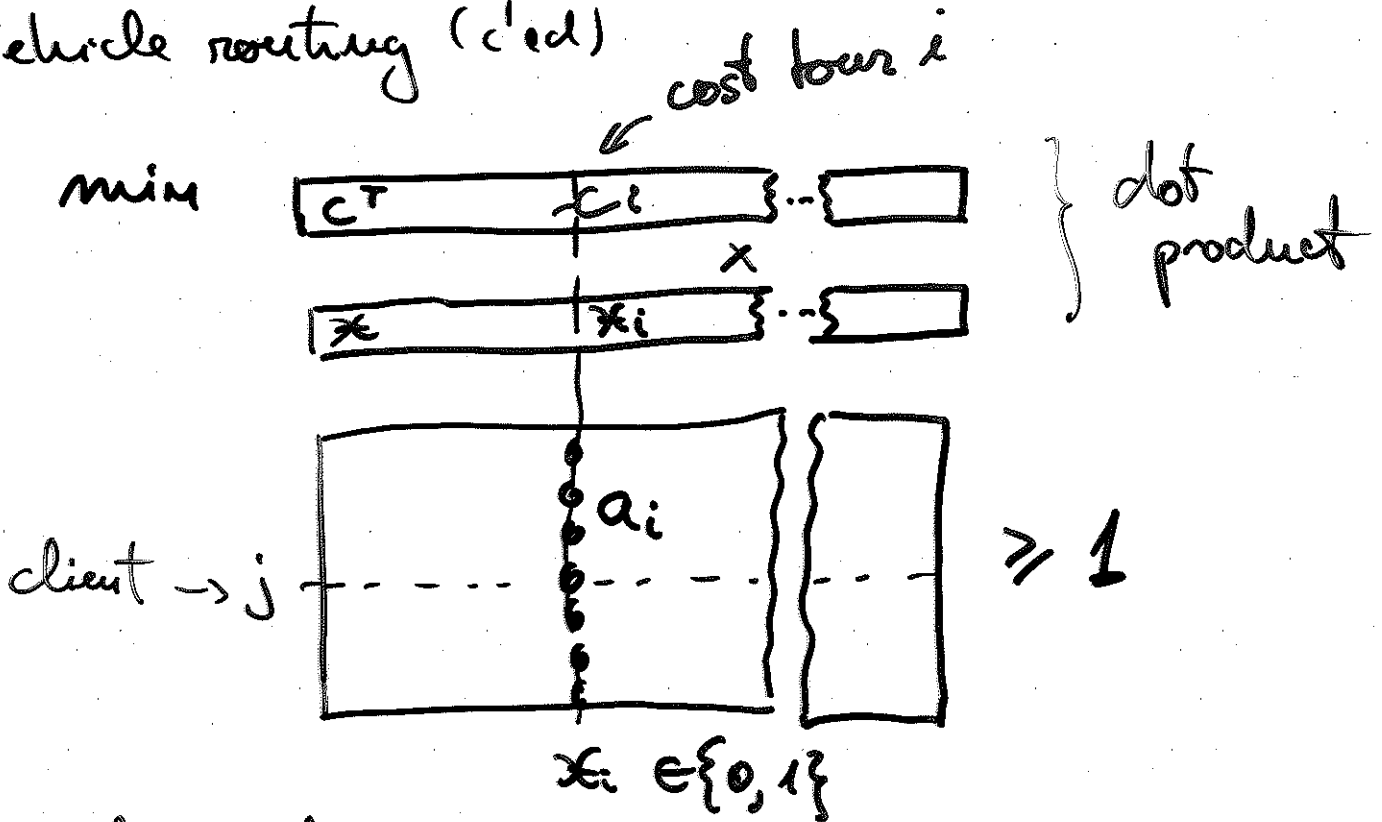 ehicle routing (c'ed)
cost tour i
min cᵀ cᵢ ... dot
x product
x xᵢ ...
aᵢ
client → j ≥ 1
xᵢ ∈ {0, 1}